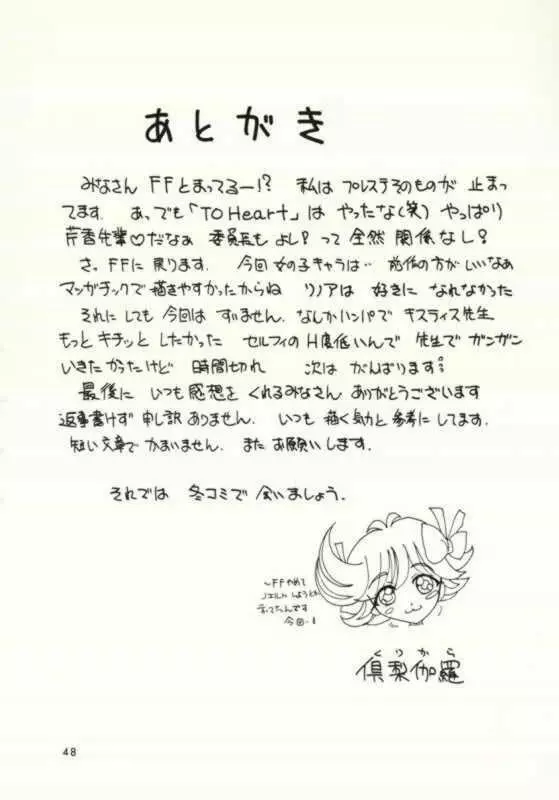 あとがき
みなさん FFとまってるー!? 私は プレステそのものが 止まっ
てます. あ、でも「TO Heart」は やったな(笑) やっぱり
芹香先輩♡だなぁ 委員長も よし? って 全然 関係なし?
さ。FFに 戻ります. 今回 女の子キャラは‥ 前作の方が いいなあ
マンガチックで 描きやすかったからね リノアは 好きに なれなかった
それにしても 今回は すいません. なんかハンパで キスティス先生
もっと キチッと したかった セルフィのH度低いんで 先生で ガンガン
いきたかったけど 時間切れ 次は がんばります。
最後に いつも 感想を くれるみなさん ありがとうございます
返事書けず 申し訳 ありません. いつも 描く気力と 参考に してます.
短い文章で かまいません. また お願いします.
それでは 冬コミで 会いましょう.
~FFやめて
ノエルにしようと
言ってたんです
今回‥!
くりから
倶梨伽羅
48